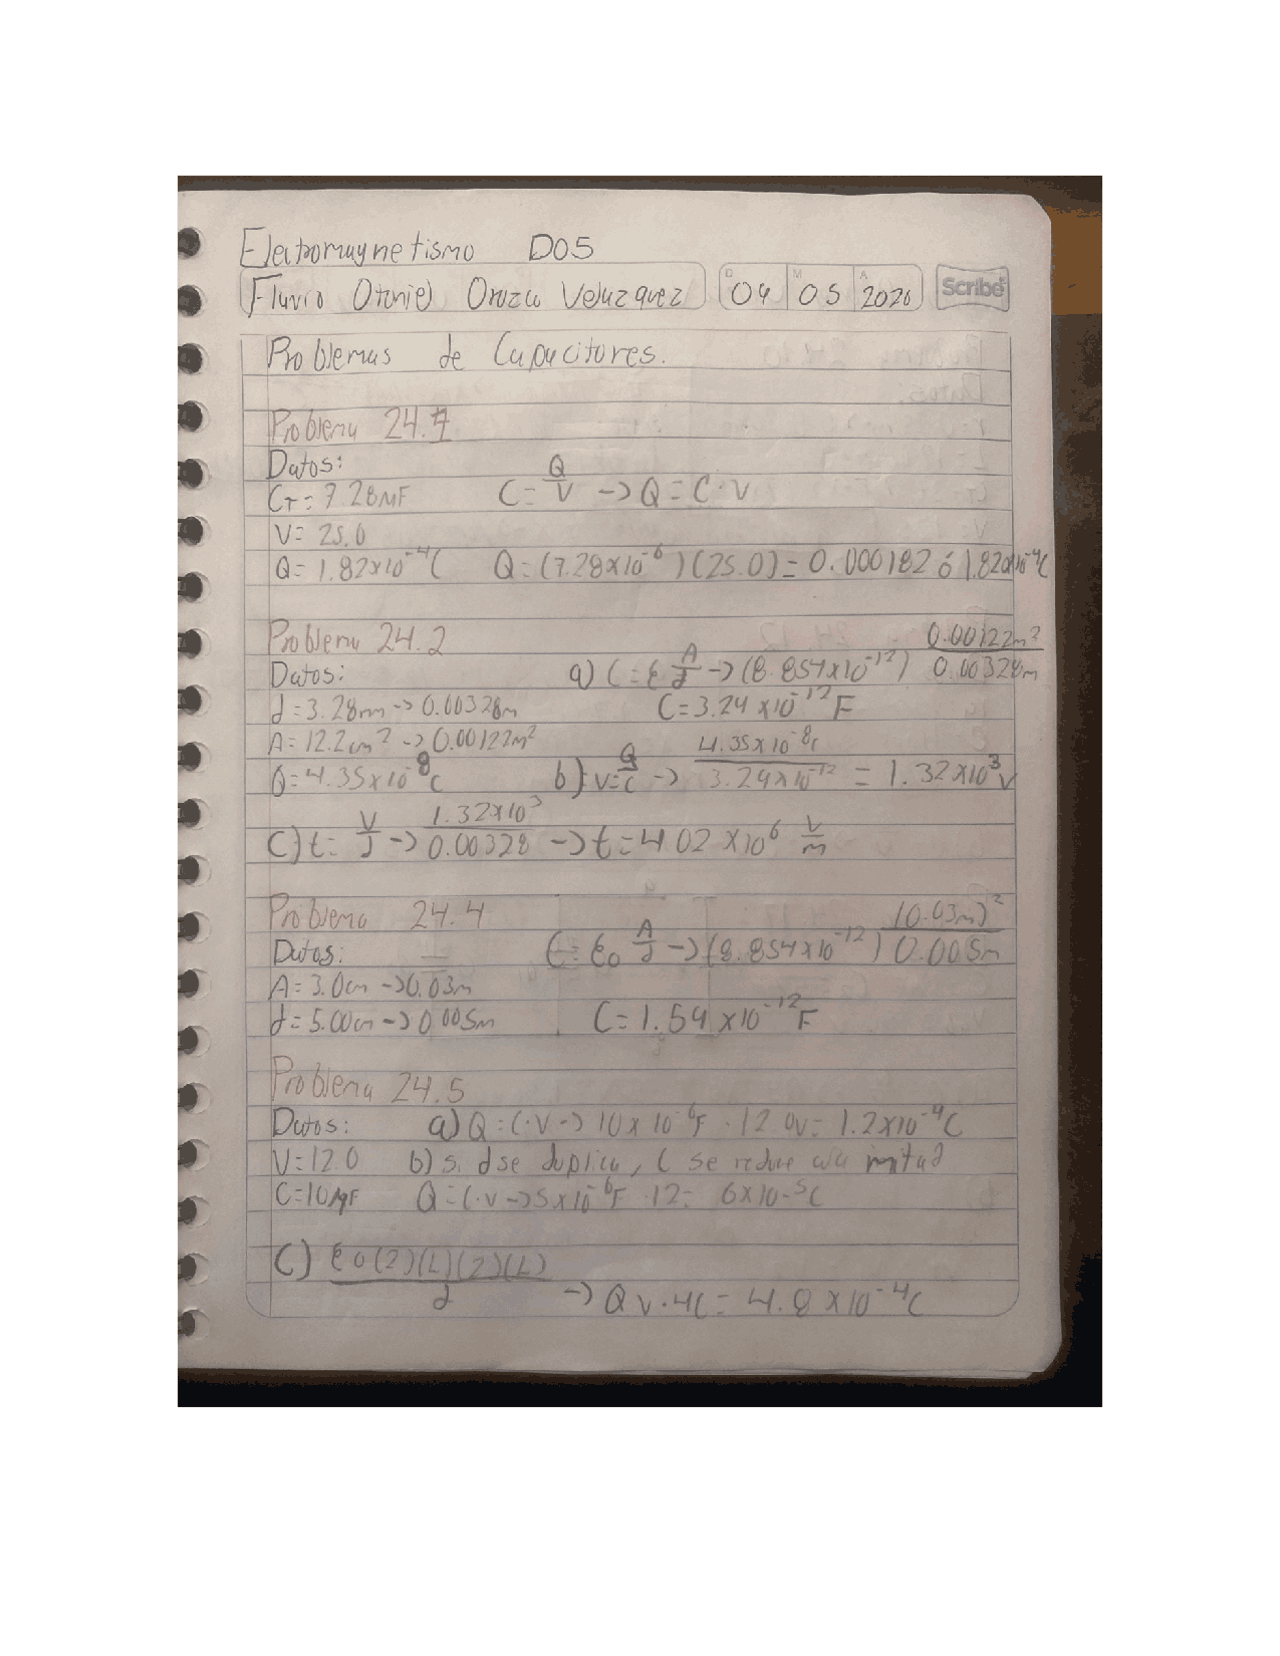 Electromagnetismo D05
Fluvio Otoniel Orozco Velazquez D 04 M 05 A 2020 Scribe
Problemas de Capacitores.
Problema 24.
Datos: Q
CT = 7.28μF C = V -> Q = C · V
V = 25.0
Q = 1.82x10^-4 C Q = (7.28x10^-6)(25.0) = 0.000182 ó 1.820x10^-4 C
Problema 24.2 0.00122m²
Datos: a) C = ε A/d -> (8.854x10^-12) 0.00328m
d = 3.28mm -> 0.00328m C = 3.24 x10^-12 F
A = 12.2cm² -> 0.00122m² 4.35x10^-8 C
Q = 4.35x10^-8 C b) V = Q/C -> 3.24x10^-12 = 1.32x10^3 V
C) t = V/d -> 1.32x10^3/0.00328 -> t = 4.02 x10^6 V/m
Problema 24.4 (0.03m)²
Datos: C = ε0 A/d -> (8.854x10^-12) 0.005m
A = 3.0cm -> 0.03m
d = 5.00cm -> 0.005m C = 1.59 x10^-12 F
Problema 24.5
Datos: a) Q = C·V -> 10x10^-6 F · 12.0V = 1.2x10^-4 C
V = 12.0 b) si d se duplica, C se reduce a la mitad
C = 10μF Q = C·V -> 5x10^-6 F · 12 = 6x10^-5 C
C) ε0(2)(L)(2)(L)
d -> Q V·4C = 4.8 x10^-4 C